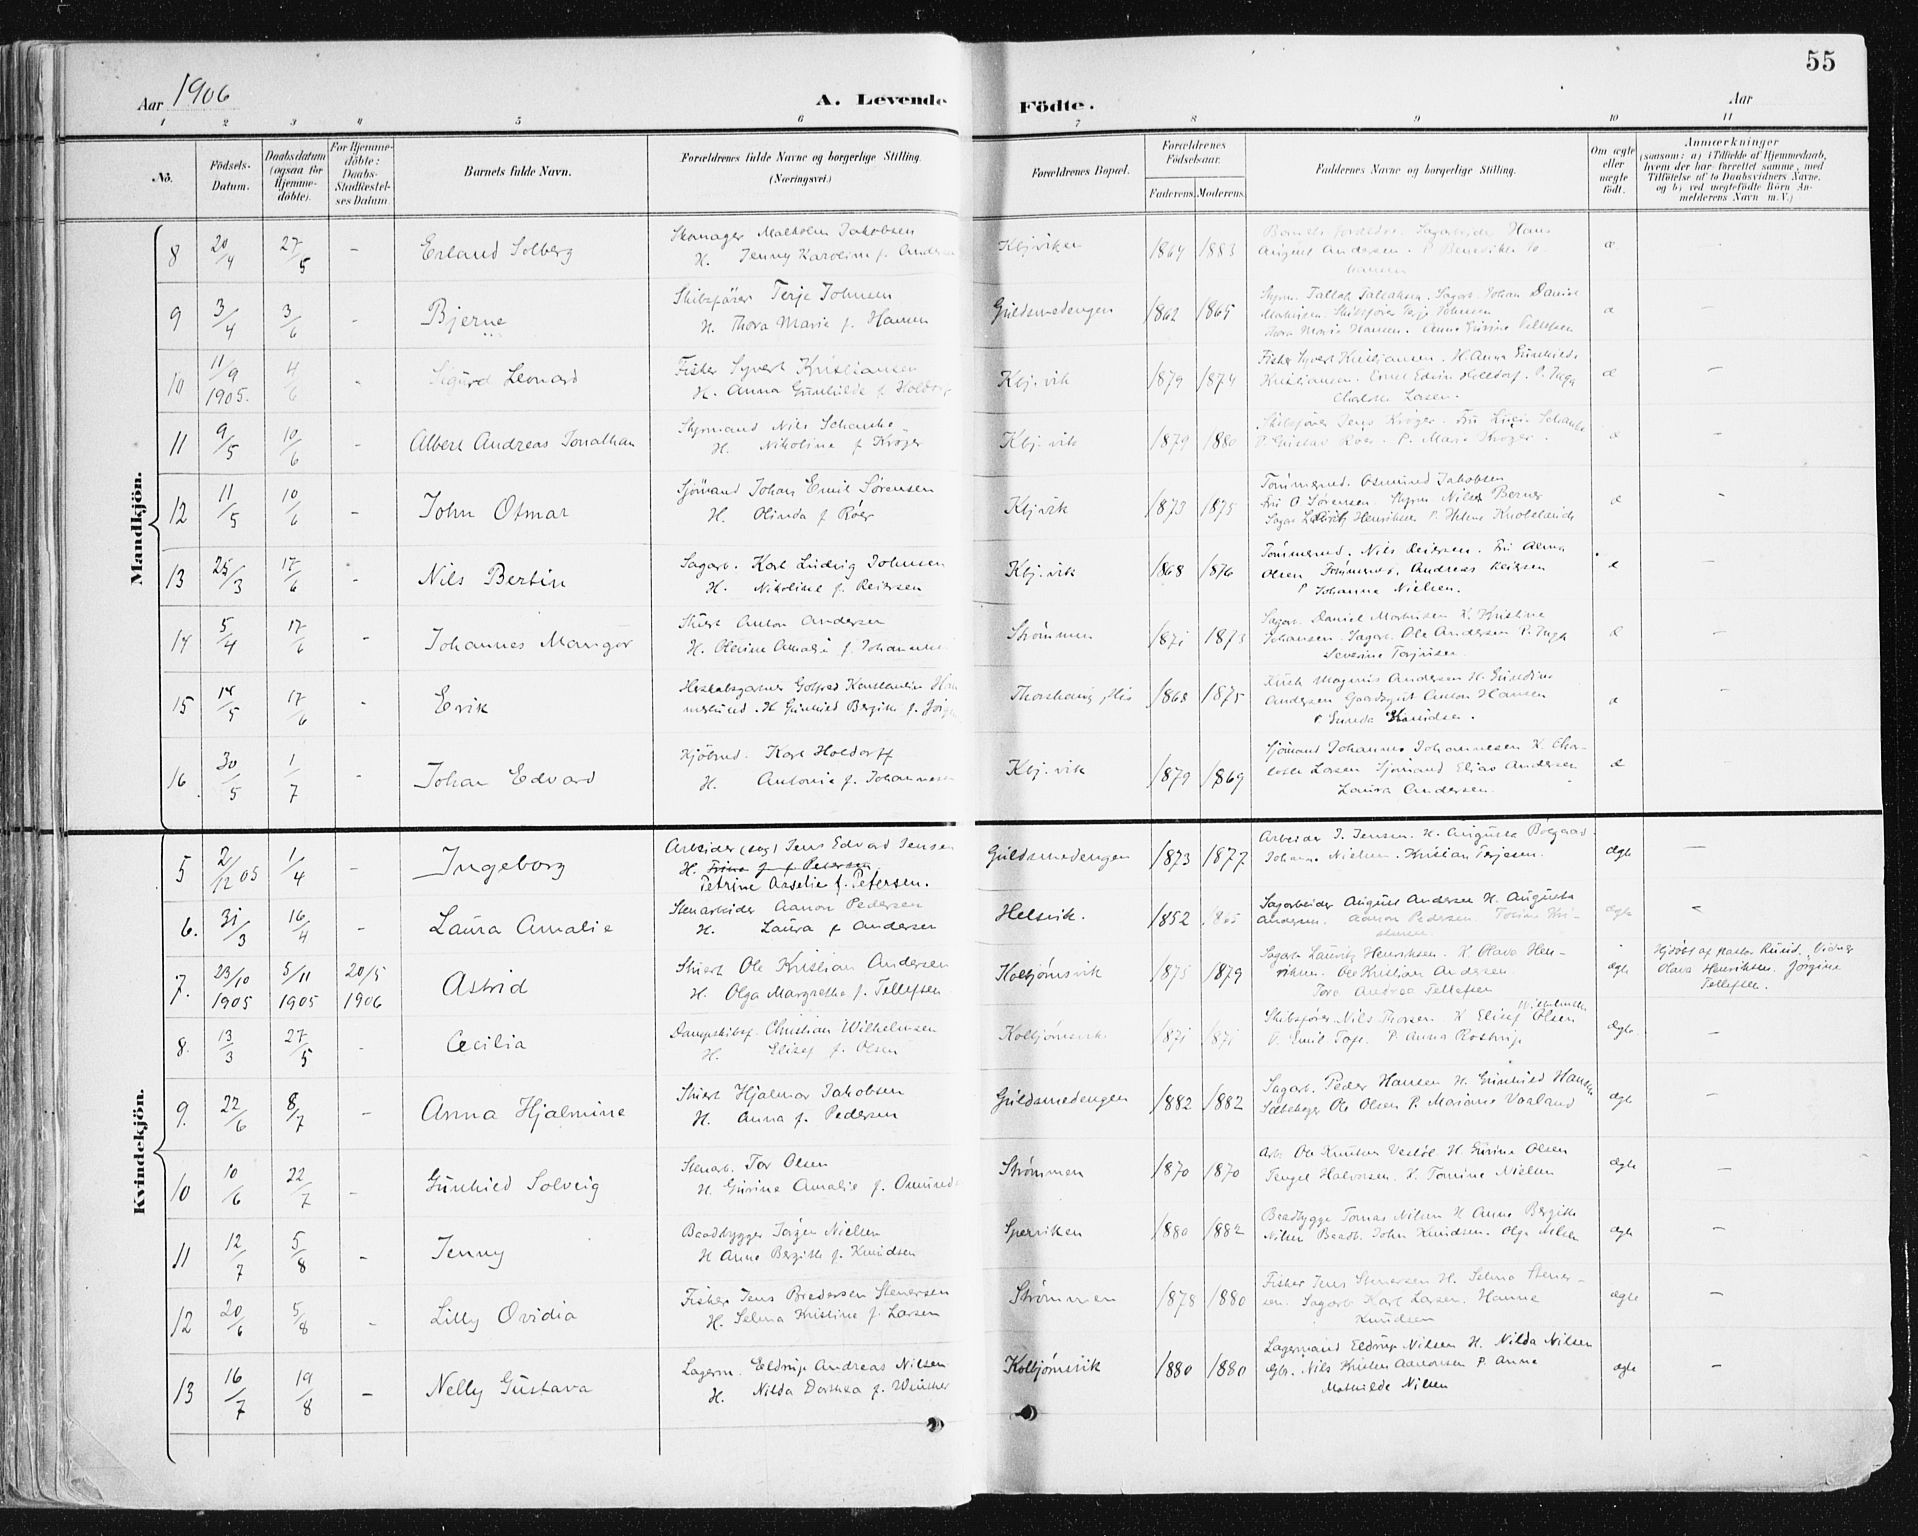 55
Aar 1906
A. Levende Födte.
Aar
1 2 3 4 5 6 7 8 9 10 11
No.
Födsels-Datum.
Daabsdatum (ogsaa for Hjemme-döbte).
For Hjemme-döbte: Daabs-Stadfæstel-ses Datum.
Barnets fulde Navn.
Forældrenes fulde Navne og borgerlige Stilling.
(Næringsvei.)
Forældrenes Bopæl.
Forældrenes Födselsaar.
Faderens. Moderens.
Faddernes Navne og borgerlige Stilling.
Om ægte eller uægte födt.
Anmærkninger
(saasom: a) i Tilfælde af Hjemmedaab, hvem der har forrettet samme, med Tilföielse af to Daabsvidners Navne, og b) ved uægtefödte Börn An-melderens Navn m. V.)
Mandkjön.
8 20/4 27/5 - Erland Solberg
Skomager Malkolm Jakobsen
H. Jenny Karoline f. Andersen
Kbjviken 1864 1883
August Andersen. P.
9 3/4 3/6 - Bjerne
Skibsfører Terje Johnsen
H. Thora Marie f. Hansen
Guldsmedengen 1862 1865
Thora Marie Hansen. Anne Gurine Tellefsen
10 11/9 1905. 4/6 - Sigurd Leonard
Fisker Syvert Kristiansen
H. Anna Gunhilde f. Holdorf
Kbj.vik 1879 1874
Fisker Syvert Kristiansen. H. Anna Gunhilde
Kristiansen. P. Inga
Charlotte Larsen.
11 9/5 10/6 - Albert Andreas Jonathan
Styrmand Nils Schanke
H. Nikoline f Krøger
Kbj.vik 1879 1880
Skibsfører Jens Krøger. Fru Lusia Schanke
P. Gustav Roer. P. Marie Krøger.
12 11/5 10/6 - John Otmar
Sjömand Johan Emil Sørensen
H. Olinda f Röer
Kbj.vik 1873 1875
Tømmermd. Osmund Jakobsen
Fru O Sørensen. Styrm Nils Berner
13 25/3 17/6 - Nils Bertin
Sagarb. Karl Ludvig Johnsen
H. Nikoline f. Reiersen
Kbj.vik 1868 1876
Tømmermd. Nils Reiersen. Fru Alma
Olsen Tømmermd. Andreas Reiersen
P Johanne Nielsen.
14 5/4 17/6 - Johannes Mangor
Stuert Anton Andersen
H. Oleine Amalie f. Johannesen
Strømmen 1871 1873
Sagarb. Daniel Mortensen K. Kristine
Johansen. Sagarb. Ole Andersen P. Inga
Severine Terjusen.
15 14/5 17/6 - Erik
Golfred Konstantin
H Gunhild Bergitte f. Jørg
Thorshaug, His 1868 1875
Magnus Andersen H. Gundine
Andersen Gaardsgut Anton Hansen
P Gunda Knudsen.
16 30/5 1/7 - Johan Edvard
Kjøbmd. Karl Holdorff
H. Antonie f. Johannesen
Kbj.vik 1879 1869
Sjömand Johannes Johannesen K. Char-
lotte Larsen Sjömand Elias Andersen
Laura Andersen.
Kvindekjön.
5 2/12 05 1/4 - Ingeborg
Arbeider (sag) Jens Edvard Jensen
H. Trine f. f Petersen
Petrine Anselie f. Petersen.
Guldsmedengen 1873 1877
Arbeider J. Jensen. H. Augusta Bolgaad.
Johanne Nielsen. Kristian Terjesen.
ægte -
6. 31/3 16/4 - Laura Amalie
Stenarbeider Aanon Pedersen
H. Laura f Andersen
Helsvik. 1852 1865
Sagarbeider August Andersen H. Augusta
Andersen. Aanon Pedersen.
ægte
7. 23/10 1905 5/11 1905 20/5 1906 Astrid
Stuert Ole Kristian Andersen
H. Olga Margrethe f. Tellefsen
Kolbjørnsvik 1875 1879
Sagarb. Lauritz Henriksen. K. Olava Hen-
riksen. Ole Kristian Andersen.
Tora Andrea Tellefsen
ægte
Hjdöbt af Pastor Rund. Vidner
Olava Henriksen. Jørgine
Tellefsen.
8. 13/3 27/5 - Cecilia
Dampskibsf. Christian Wilhelmsen
H. Elisef f. Olsen
Kolbjørnsvik 1871 1871
Wilhelmsen
Skibsfører Nils Thorsen. K Elisef Olsen
P. Anna Rostrup
ægte -
9. 22/6 8/7 - Anna Hjalmine
Stuert Hjalmar Jakobsen
H. Anna f. Pedersen
Guldsmedengen 1882 1882
Sagarb. Peder Hansen H. Gunhild Hansen
Ole Olsen P. Mariane Varland
ægte -
10 10/6 22/7 Gunhild Solveig
Stenarb. Tor Olsen
H. Gurine Amalie f. Omunds
Strømmen 1870 1870
Arb. Ole Knutsen Vestöl H. Gurine Olsen
Tengel Halvorsen. K. Tomine Nielsen
ægte -
11 12/7 5/8 - Jenny
Baadbygger Jørgen Nielsen
H Anne Bergitte f. Knudsen
Sperviken 1880 1882
Baadbygge Tomas Nilsen H Anne Bergitte
Nilsen Baadb. John Knudsen. Olga Nilsen
ægte -
12 20/6 5/8 - Lilly Ovidia
Fisker Jens Bredersen Stenersen
H. Selma Kristine f. Larsen
Strømmen 1878 1880
Fisker Jens Stenersen H. Selma Stener-
sen. Sagarb Karl Larsen. Hanna
Knudsen
ægte -
13 16/7 19/8 - Nelly Gustava
Lagerm. Eldrup Andreas Nilsen
H. Nilda Dorthea f. Winther
Kolbjørnsvik 1880 1880
Lagermand Eldrup Nilsen H. Nilda Nilsen
Nils Kristen Aanonsen P. Anna
Mathilde Nilsen
ægte -